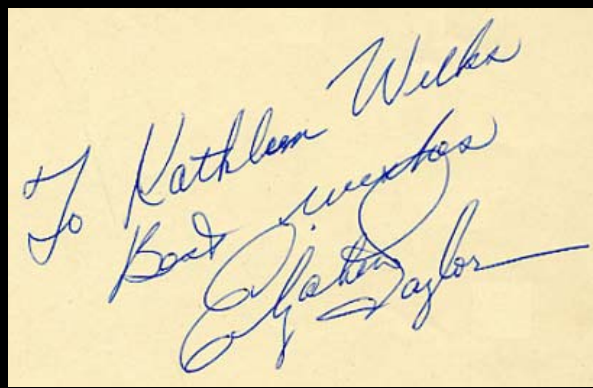 To Kathleen Wilks
Best wishes
Elizabeth
Taylor